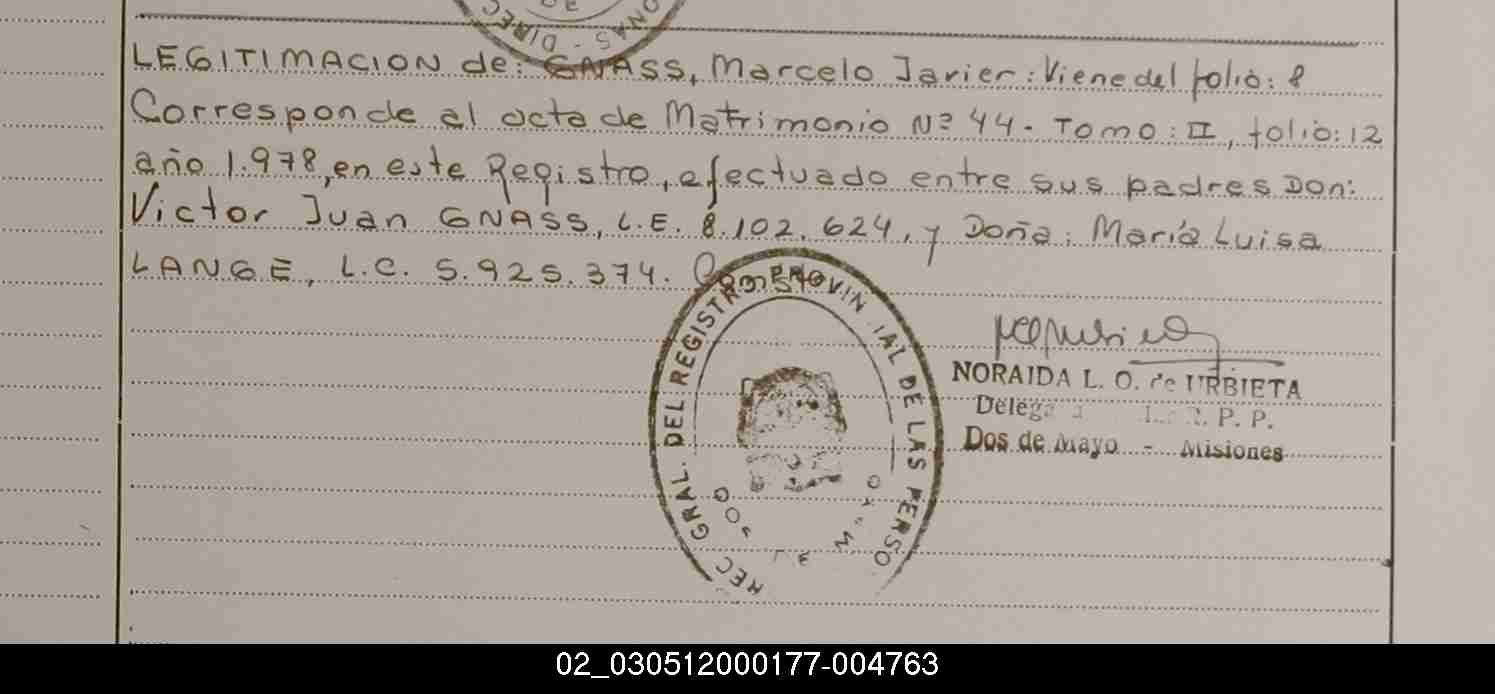 LEGITIMACION de: GNASS, Marcelo Javier: Viene del folio: 8
Corresponde al acta de Matrimonio Nº 44. Tomo: II, folio: 12
año 1.978, en este Registro, efectuado entre sus padres Don:
Victor Juan GNASS, L.E. 8.102.624, y Doña: María Luisa
LANGE, L.C. 5.925.374.
GRAL. DEL REGISTRO PROVINCIAL DE LAS PERSO
DOS DE MAYO
NORAIDA L. O. de URBIETA
P. P.
Dos de Mayo - Misiones
02_030512000177-004763